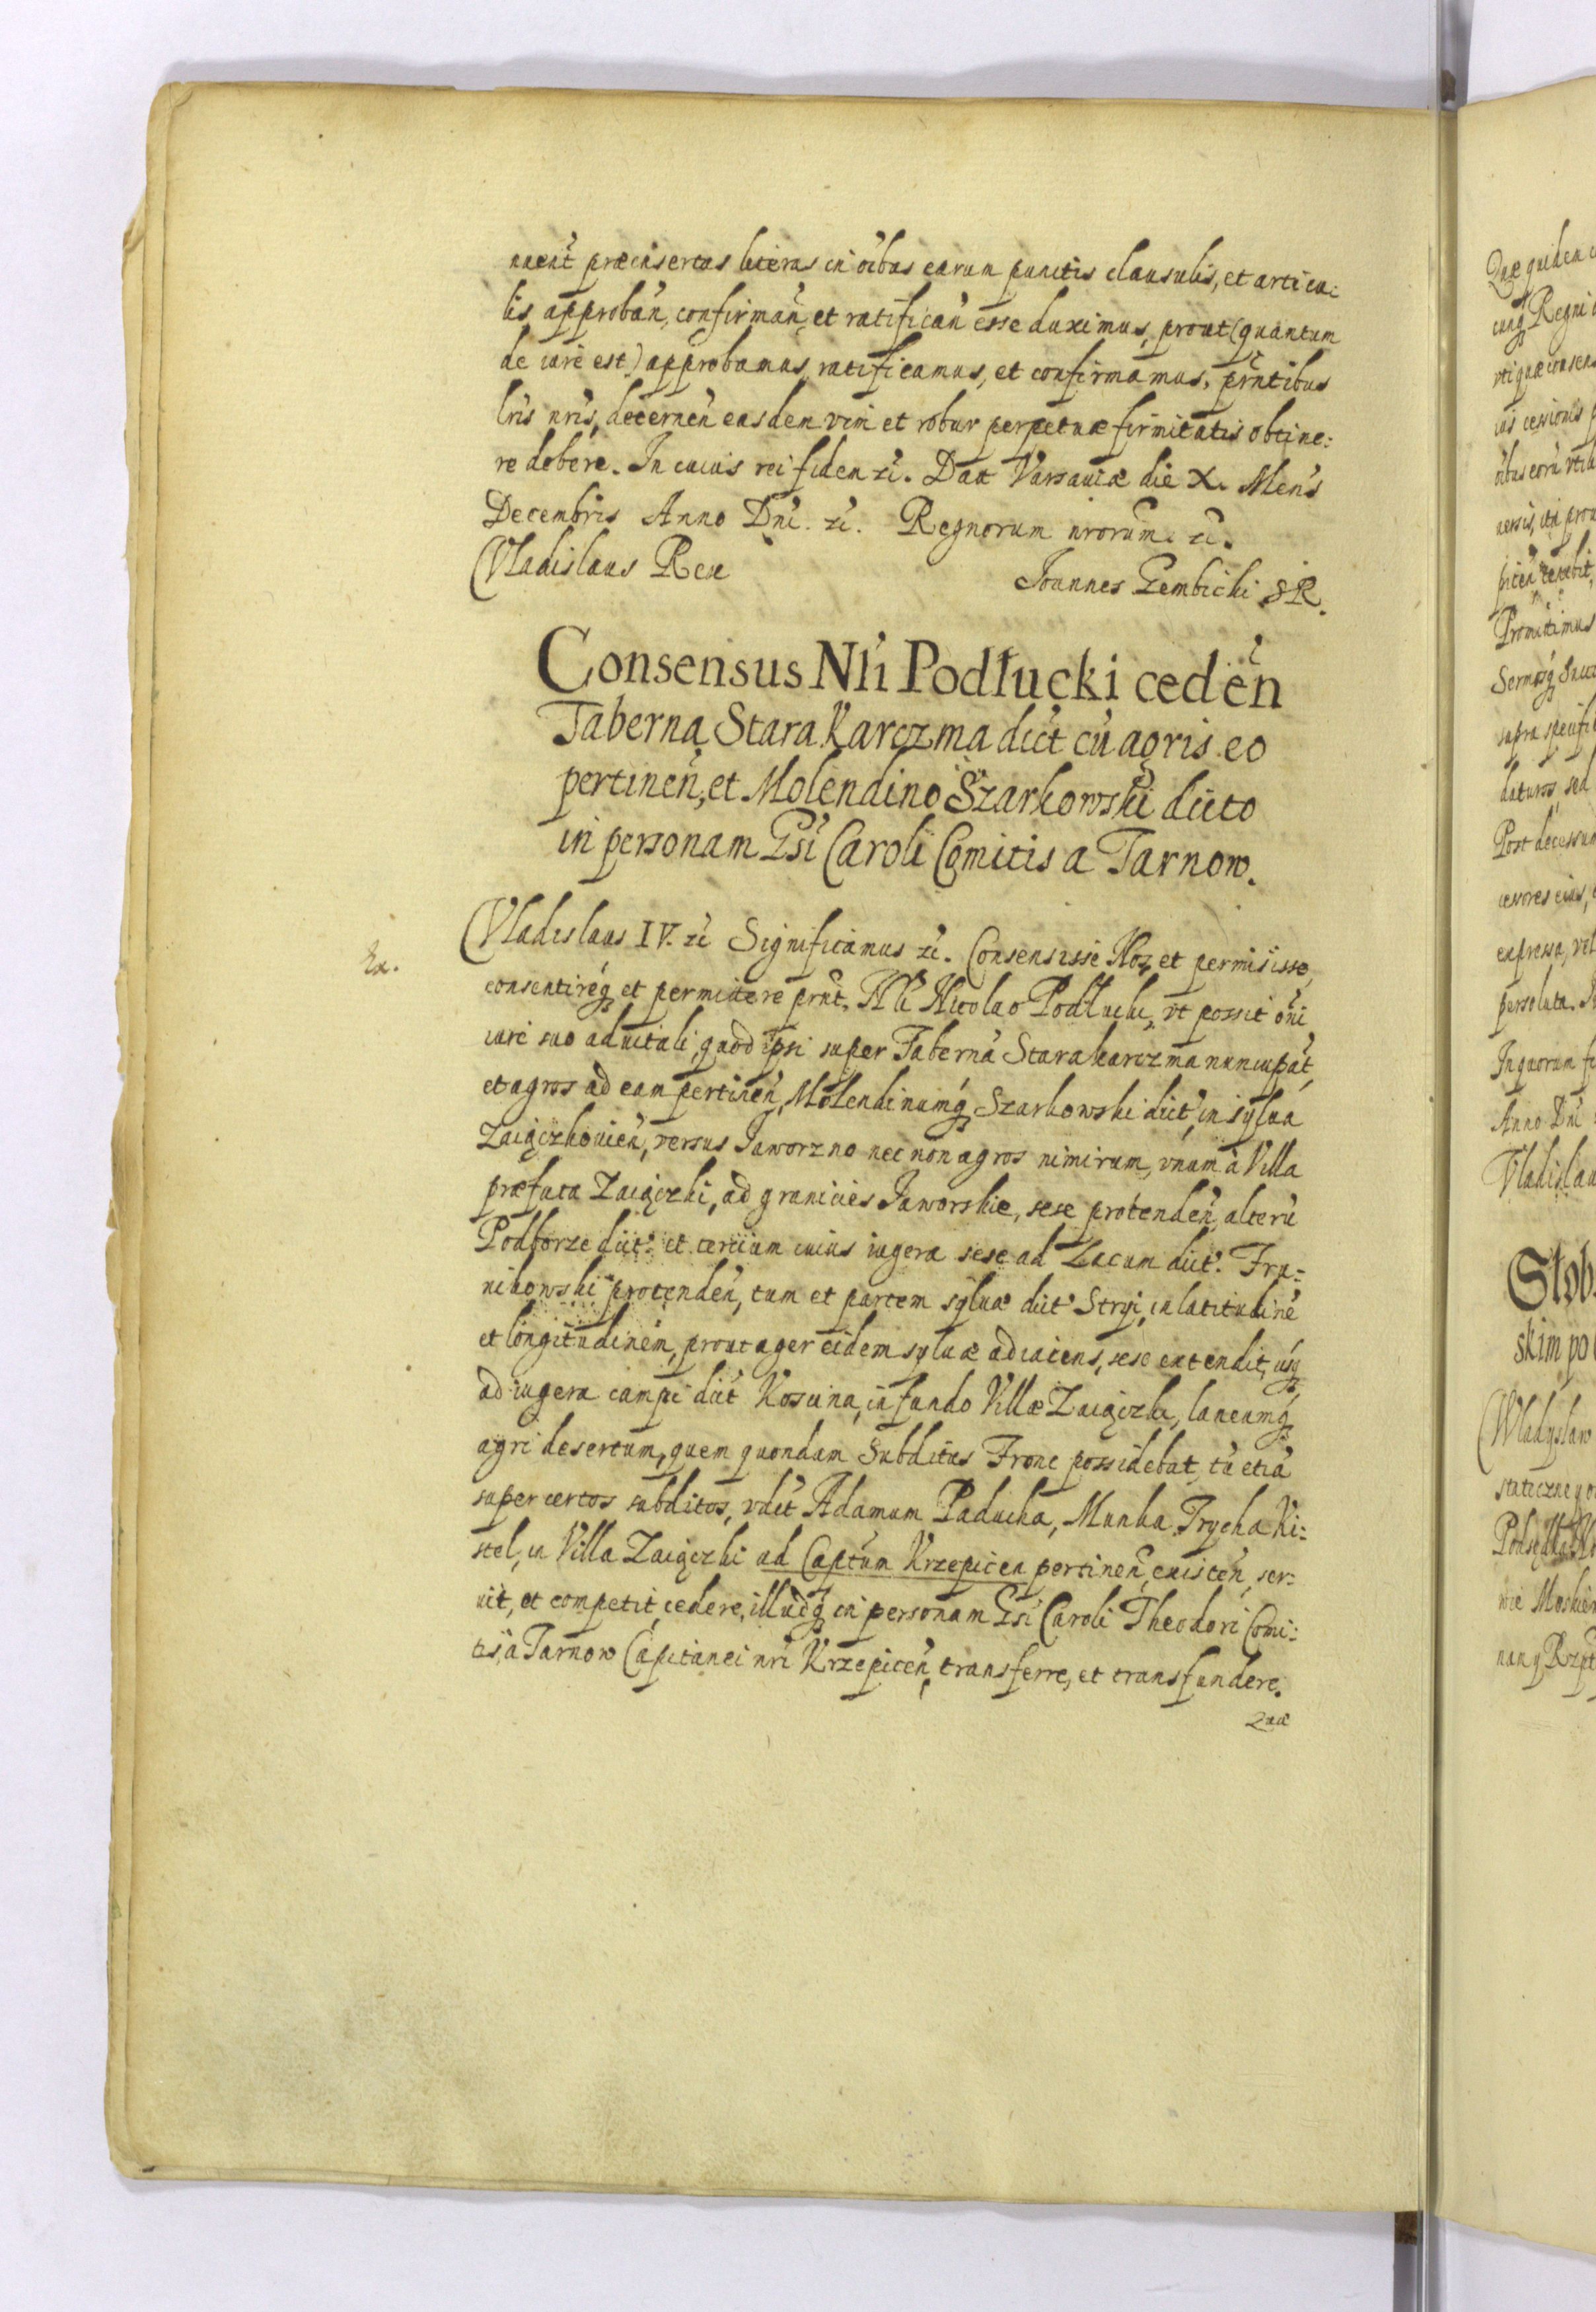 nuent præinsertas literas in oibus earum punctis clausulis, et articu:
lis, approban, confirman, et ratifican esse duximus, prout (quantum
de iure est) approbamus, ratificamus, et confirmamus, prntibus
lris nris, decernen easdem vim et robur perpetuæ firmitatis obtine:
re debere. In cuius rei fidem zc. Dat Varsaviæ die X. Mens
Decembris Anno Dni. zc. Regnorum nrorum. zc.
Vladislaus Rex
Joannes Gembicki SR.
Consensus Nli Podłucki ceden
Taberna Stara Karczma dict cu agris eo
pertinen, et Molendino Szarkowski dicto
in personam Gsi Caroli Comitis a Tarnow.
Ex.
Vladislaus IV. zc Significamus zc. Consensisse Nos, et permisisse,
consentireq et permittere prnt. Nli Nicolao Podłucki, vt possit oni
iure suo aduitali, quod ipsi super Taberna Stara karczma nuncupat,
et agros ad eam pertinen, Molendinumq Szarkowski dict, in sylua
Zaiączkouien, versus Jaworzno nec non agros nimirum, vnum à Villa
præfata Zaiączki, ad granicies Jaworskie, sese protenden, alteru
Podborze dict. et tertium cuius iugera sese ad Lacum dict. Fra:
nikowski protenden, tum et partem syluæ dict Stryi, in latitudine
et longitudinem, prout ager eidem syluæ adiacens, sese extendit, usq
ad iugera campi dict Kosuina, in fundo Villæ Zaiączki, laneumq
agri desertum, quem quondam Subditus Fronc possidebat, tu etia
super certos subditos, vdct Adamum Paducha, Munka, Frycha Ki:
stel, in Villa Zaiączki ad Captum Krzepicen pertinen, existen, ser:
uit, et competit, cedere, illudq in personam Gsi Caroli Theodori Comi:
tis, a Tarnow Capitanei nri Krzepicen, transferre, et transfundere.
Quæ
Quæ quidem
cunq Regni
vti quæ consens
ius cessionis
oibus eoru
uersis, ita prou
picen tenebit,
Promittimus
Sermosq Succ
supra specifi
daturos, sed
Post decessum
cessores eius,
expressa, vel
persoluta.
In quorum fi
Anno Dni
Vladislau
Słob
skim po
Wladysław
stateczney
nany Rzpt